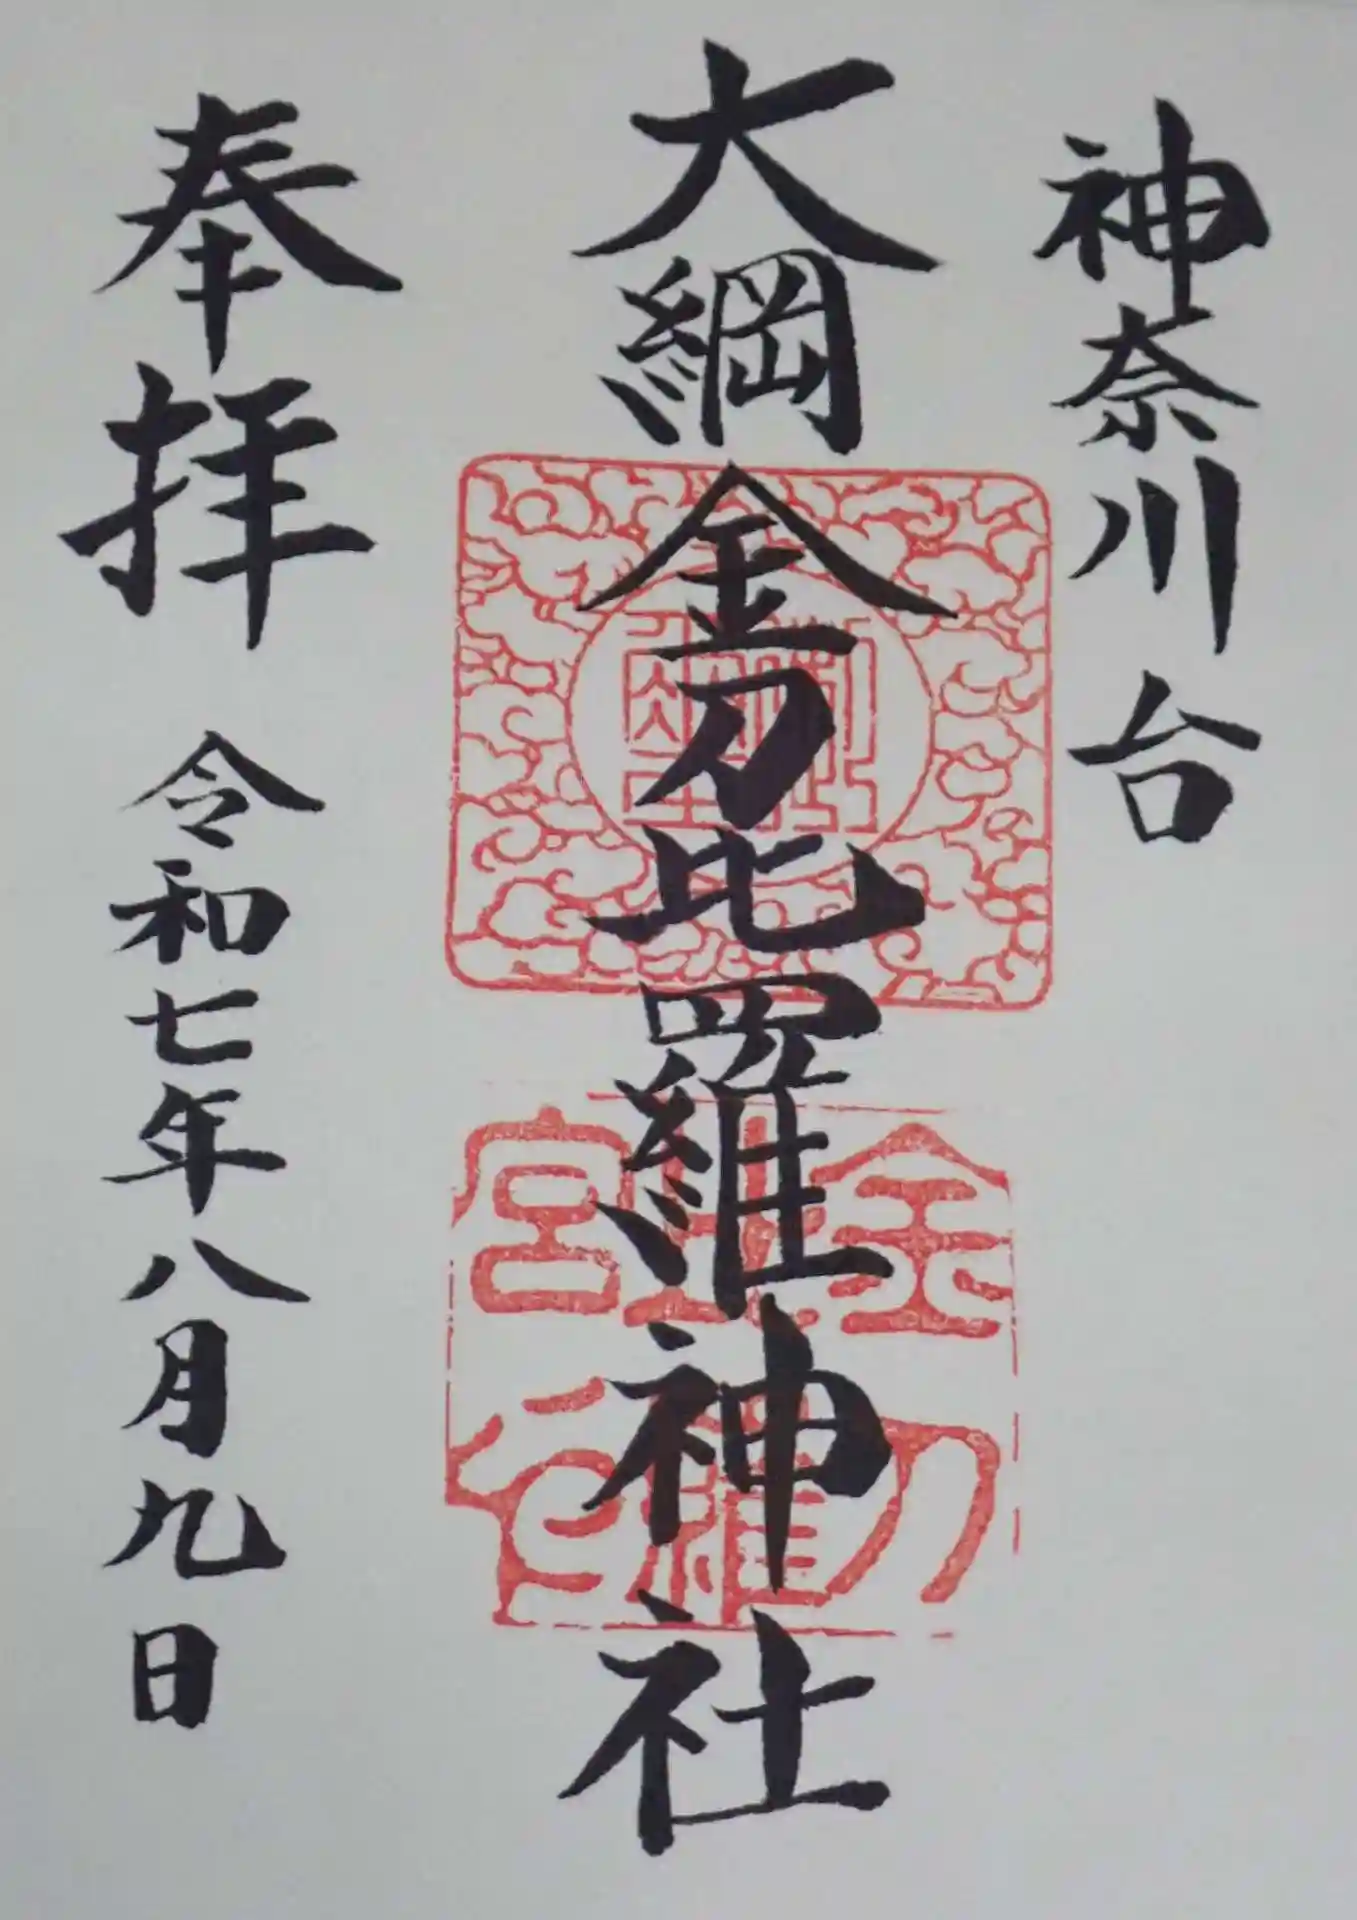 神奈川台
大綱金刀比羅神社
奉拝 令和七年八月九日